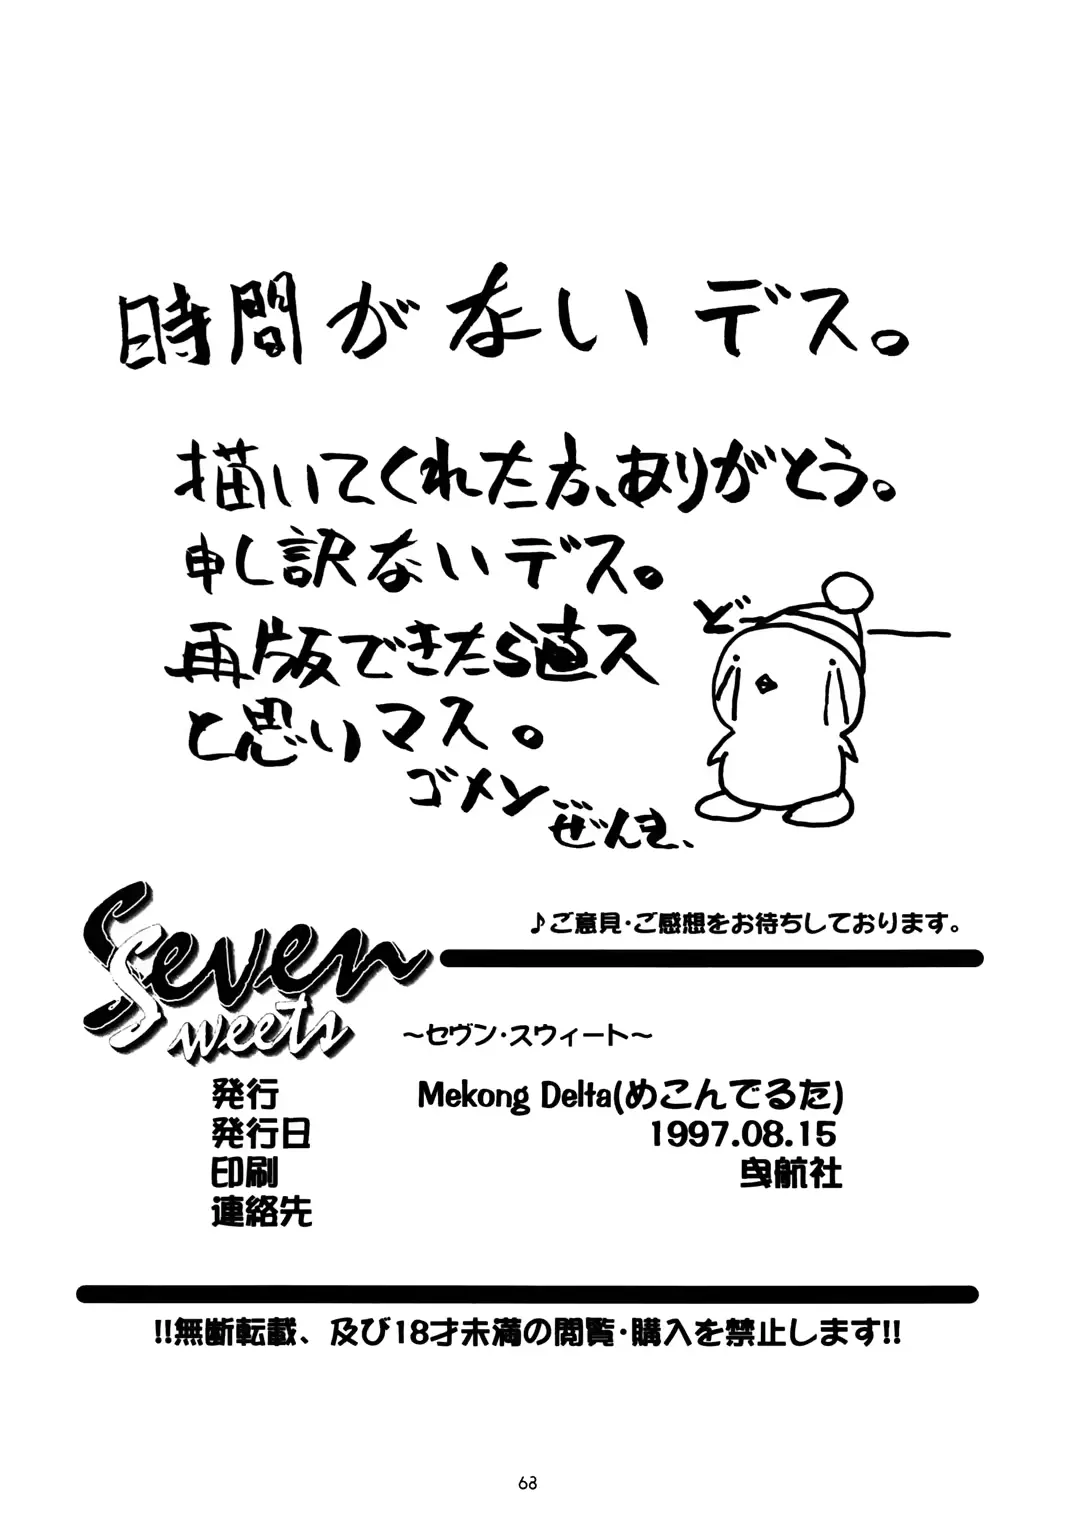 時間がないデス。
描いてくれた方、ありがとう。
申し訳ないデス。
再版できたら直ス
と思いマス。
ゴメン
ぜんき、
ど
♪ご意見・ご感想をお待ちしております。
Seven
Sweets
～セヴン・スウィート～
発行 Mekong Delta(めこんでるた)
発行日 1997.08.15
印刷 曳航社
連絡先
!!無断転載、及び18才未満の閲覧・購入を禁止します!!
68